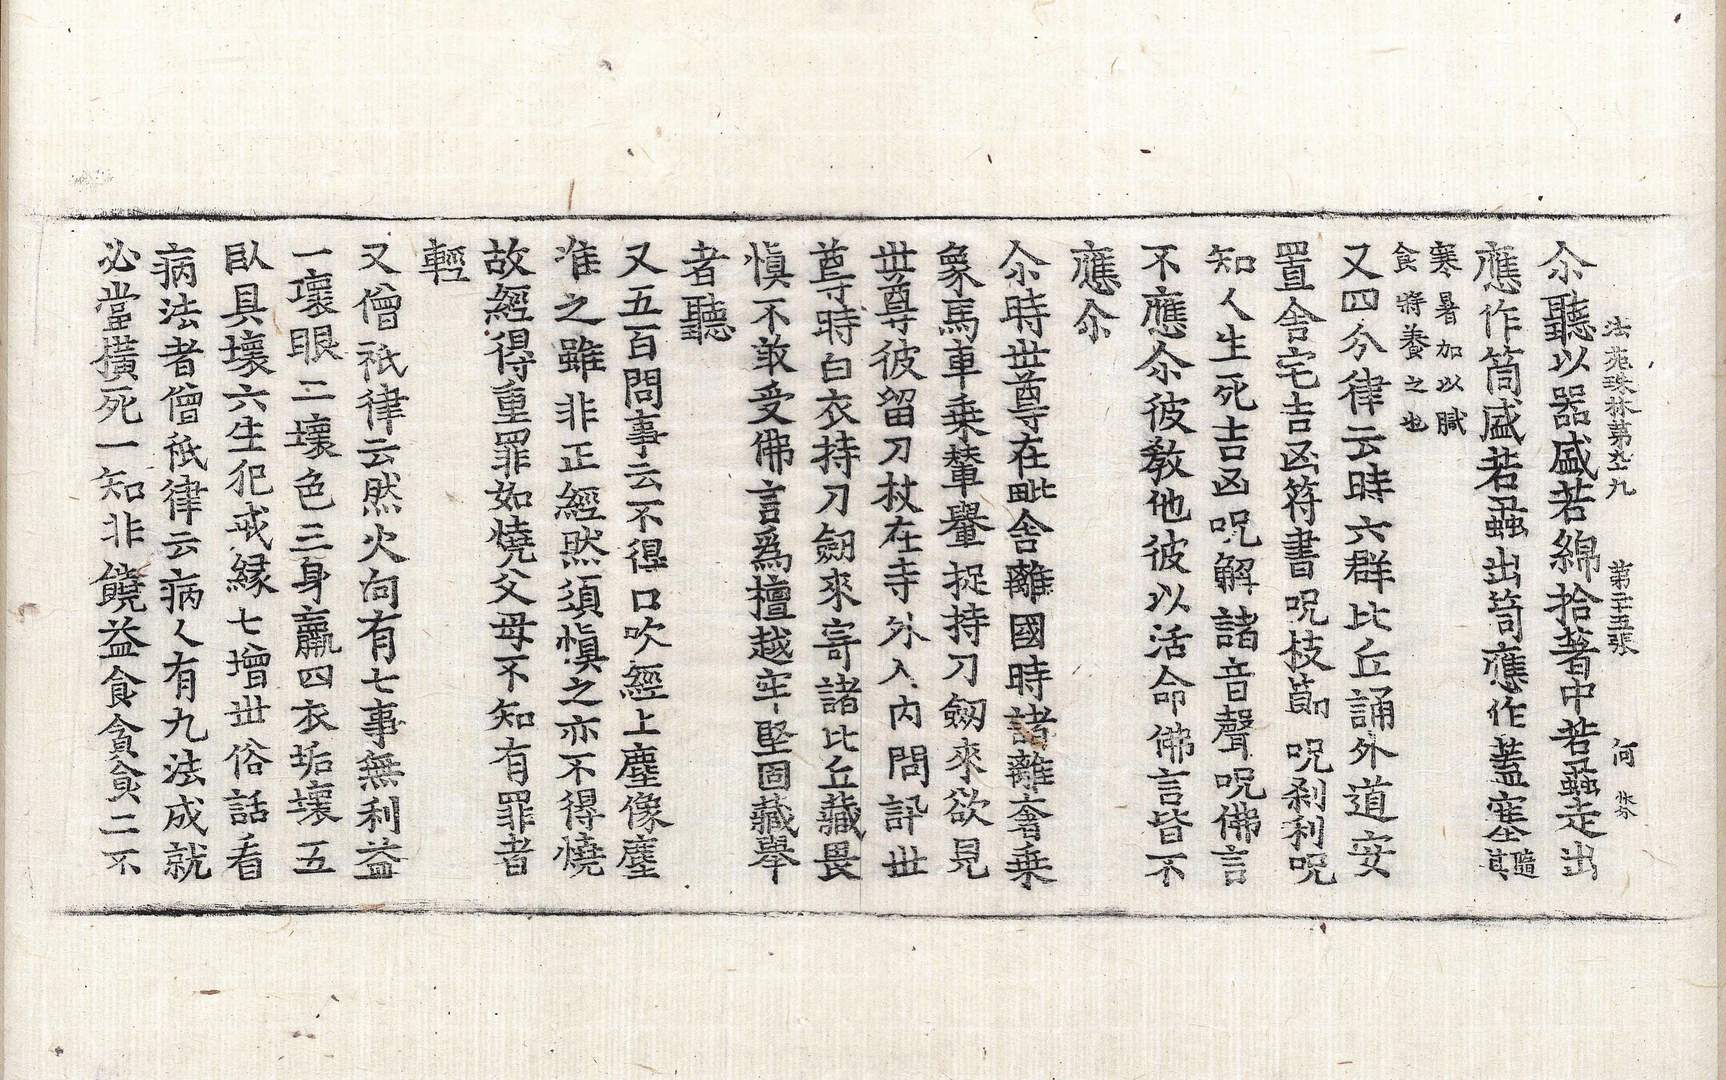 法苑珠林第九十九　第二十五張　何
尒聽以器盛若綿拾著中若蟲走出
應作筒盛若蟲出筒應作蓋塞隨其
寒暑加以膩
食將養之也
又四分律云時六群比丘誦外道安
置舍宅吉凶符書呪枝節呪刹利呪
知人生死吉凶呪解諸音聲呪佛言
不應尒彼教他彼以活命佛言皆不
應尒
尒時世尊在毗舍離國時諸離奢乗
象馬車乗輦轝捉持刀劒來欲見
世尊彼留刀杖在寺外入內問訊世
尊時白衣持刀劒來寄諸比丘藏畏
慎不敢受佛言爲檀越牢堅固藏舉
者聽
又五百問事云不得口吹經上塵像塵
准之雖非正經然須慎之亦不得燒
故經得重罪如燒父母不知有罪者
輕
又僧祇律云然火向有七事無利益
一壞眼二壞色三身羸四衣垢壞五
臥具壞六生犯戒緣七增世俗話看
病法者僧祇律云病人有九法成就
必當橫死一知非饒益食貪食二不